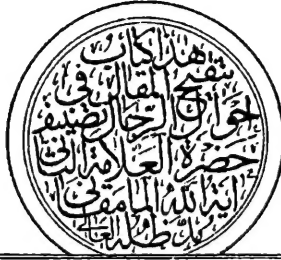 هذا كتاب
تنقيح المقال في
احوال الرجال تصنيف
حضرة العلامة الثاني
آية الله المامقاني
مد ظله العالي